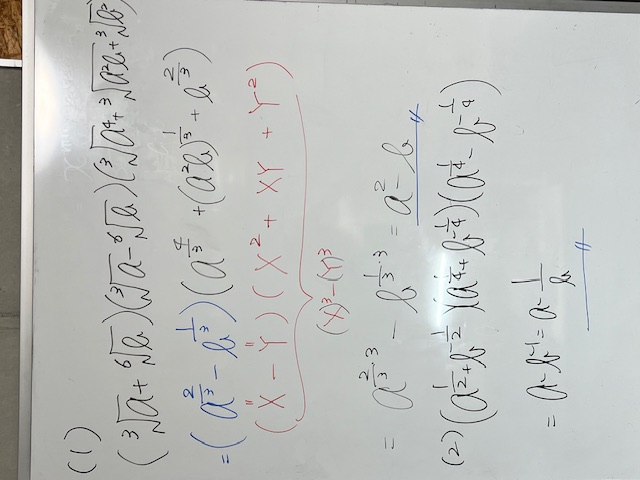 (1)
(³√a + ⁶√b)(³√a − ⁶√b)(³√a⁴ + ³√a²b + ³√b²)
= (a^(2/3) − b^(1/3))(a^(4/3) + (a²b)^(1/3) + b^(2/3))
(X − Y)(X² + XY + Y²)
(X)³ − (Y)³
= a^(2/3·3) − b^(1/3·3) = a² − b
(2) (a^(1/2) + b^(-1/2))(a^(1/4) + b^(-1/4))(a^(1/4) − b^(-1/4))
= a − b⁻¹ = a − 1/b